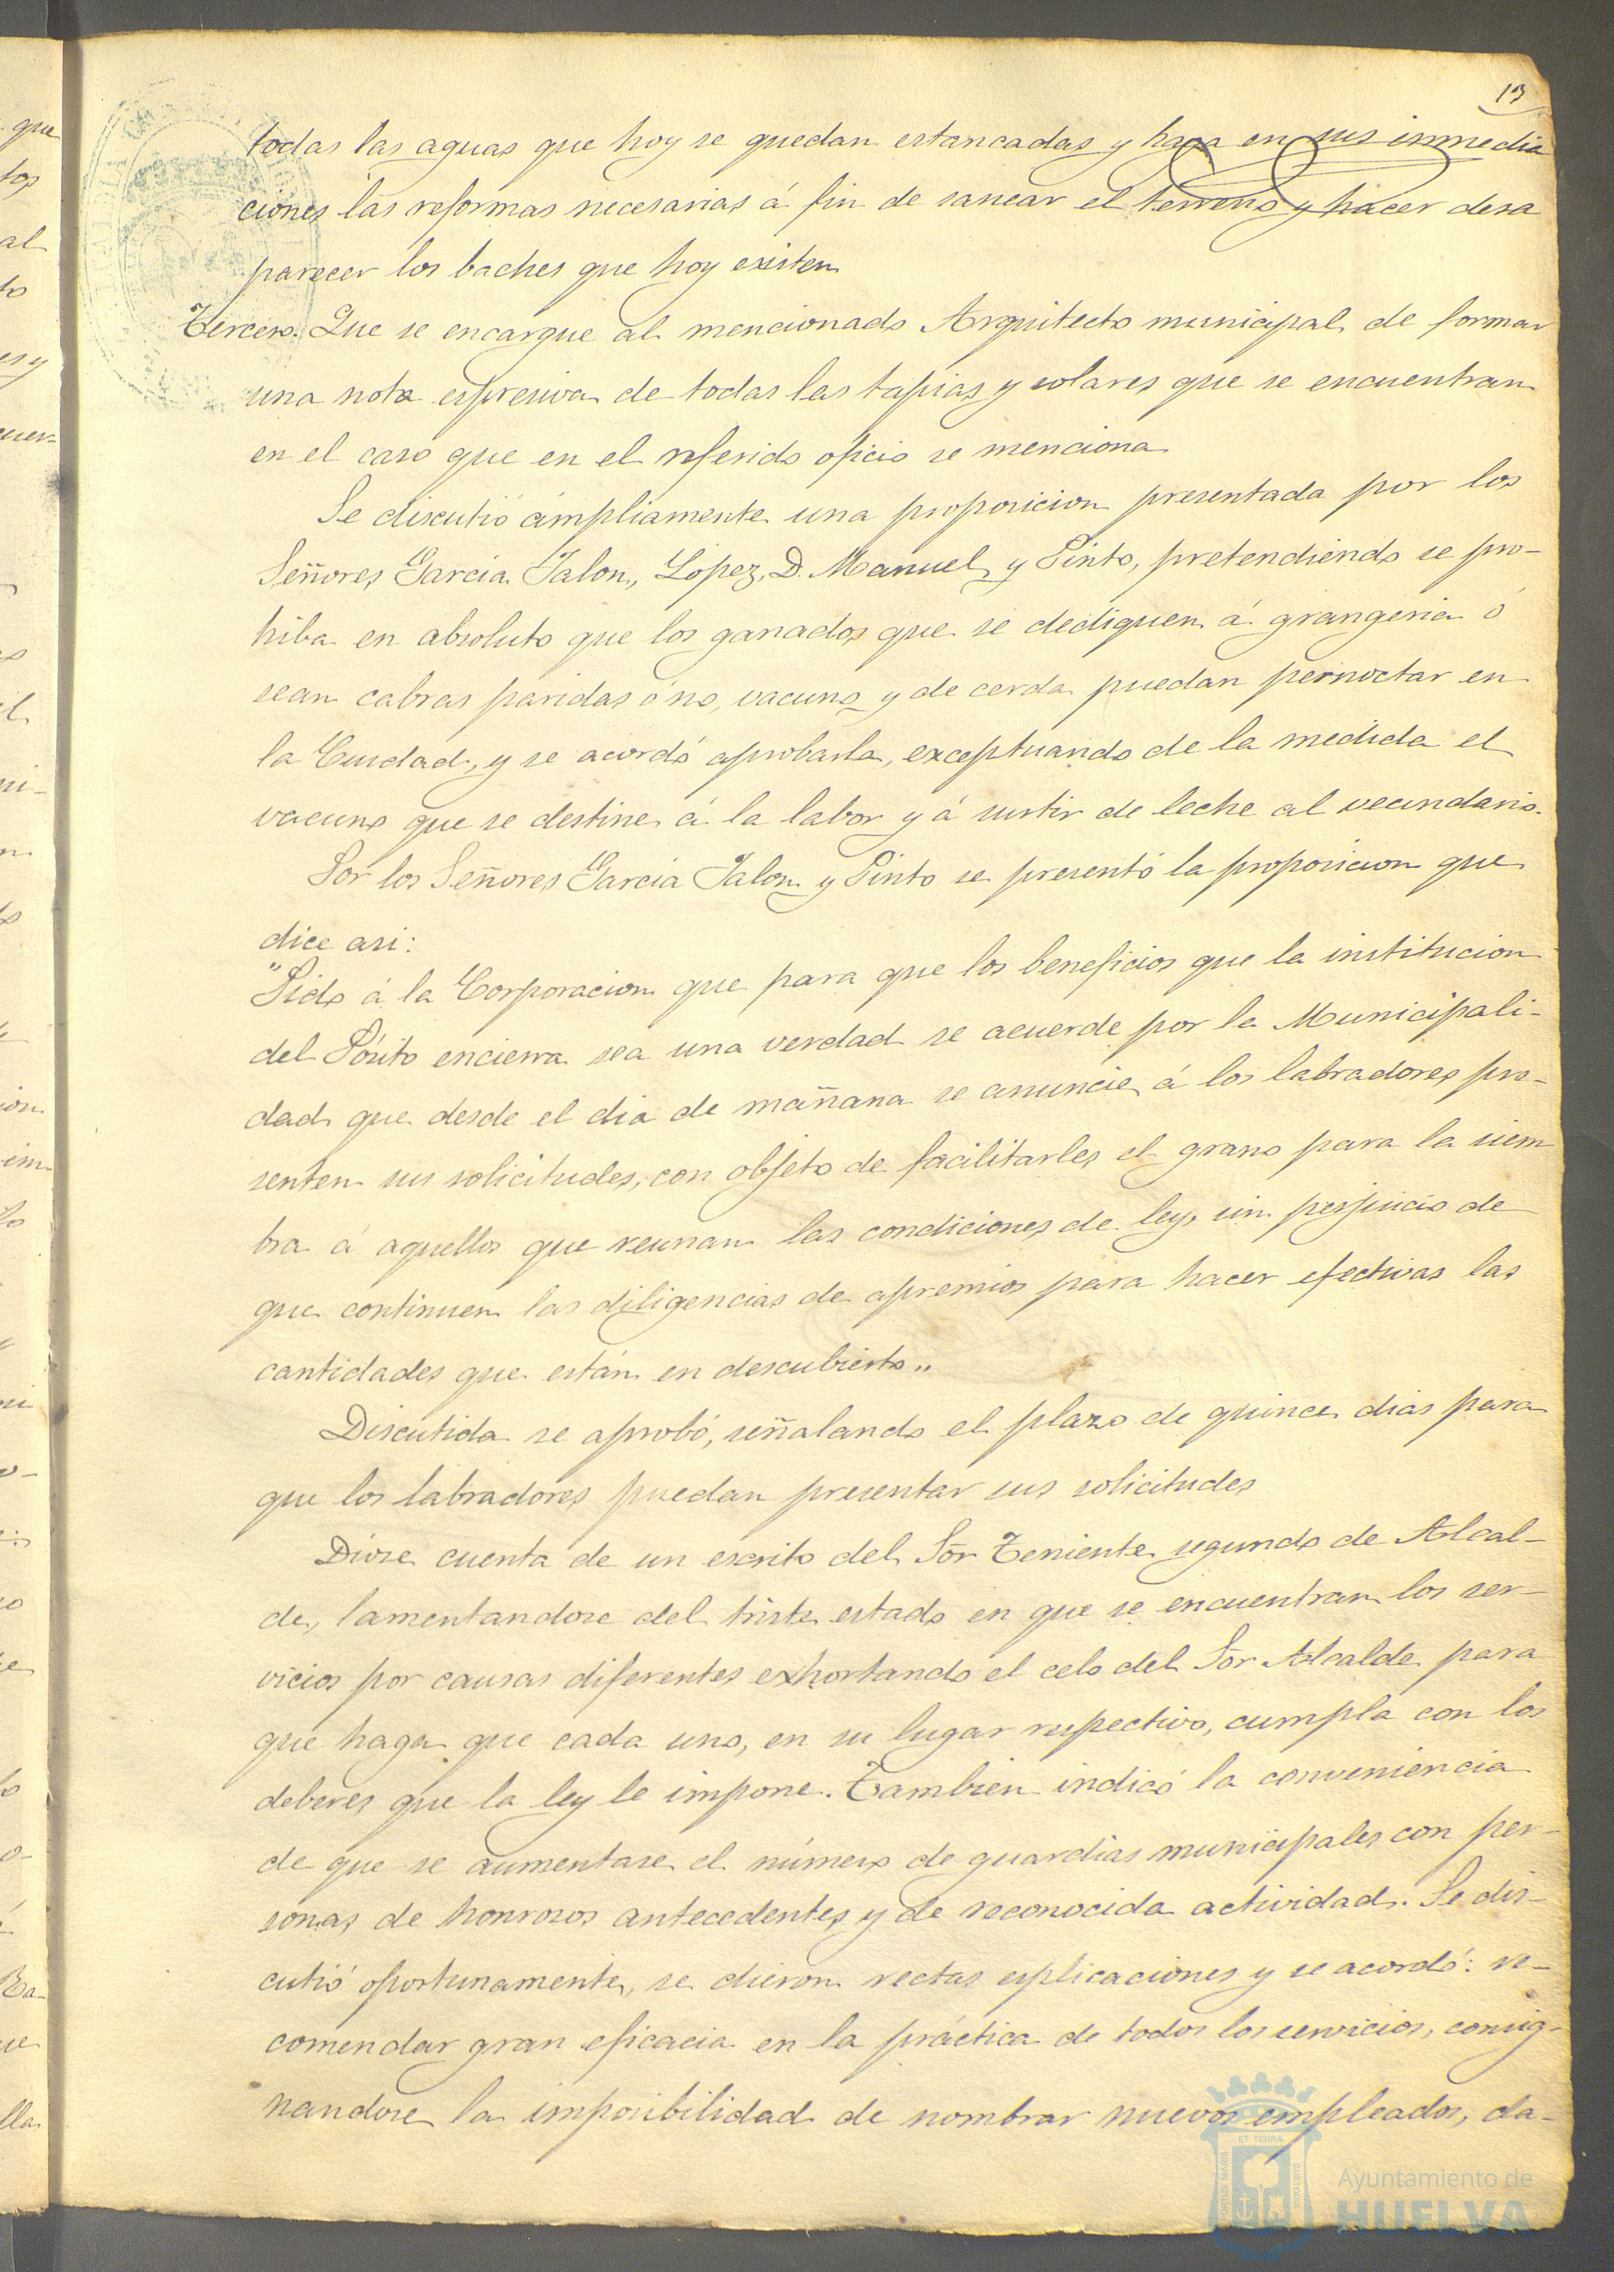 13
todas las aguas que hoy se quedan estancadas y haga en sus inmedia
ciones las reformas necesarias á fin de sanear el terreno y hacer desa
parecer los baches que hoy existen
Tercero. Que se encargue al mencionado Arquitecto municipal de formar
una nota espresiva de todas las tapias y solares que se encuentran
en el caso que en el referido oficio se menciona
Se discutió ámpliamente una proposicion presentada por los
Señores Garcia Jalon, Lopez, D. Manuel y Pinto, pretendiendo se pro-
hiba en absoluto que los ganados que se dediquen á grangeria ó
sean cabras paridas ó no, vacuno y de cerda puedan pernoctar en
la Ciudad, y se acordó aprobarla, exceptuando de la medida el
vacuno que se destine á la labor y á surtir de leche al vecindario.
Por los Señores Garcia Jalon y Pinto se presentó la proposicion que
dice asi:
"Pido á la Corporacion que para que los beneficios que la institucion
del Pósito encierra sea una verdad se acuerde por la Municipali-
dad que desde el dia de mañana se anuncie á los labradores pre-
senten sus solicitudes, con objeto de facilitarles el grano para la siem
bra á aquellos que reunan las condiciones de ley, sin perjuicio de
que continuen las diligencias de apremios para hacer efectivas las
cantidades que están en descubierto"
Discutida se aprobó, señalando el plazo de quince dias para
que los labradores puedan presentar sus solicitudes
Dióse cuenta de un escrito del Sor Teniente segundo de Alcal-
de, lamentandose del triste estado en que se encuentran los ser-
vicios por causas diferentes exhortando el celo del Sor Alcalde para
que haga que cada uno, en su lugar respectivo, cumpla con los
deberes que la ley le impone. Tambien indicó la conveniencia
de que se aumentase el número de guardias municipales con per-
sonas de honrosos antecedentes y de reconocida actividad. Se dis-
cutió oportunamente, se dieron rectas esplicaciones y se acordó: re-
comendar gran eficacia en la práctica de todos los servicios, consig-
nandose la imposibilidad de nombrar nuevos empleados, da-
Ayuntamiento de
HUELVA